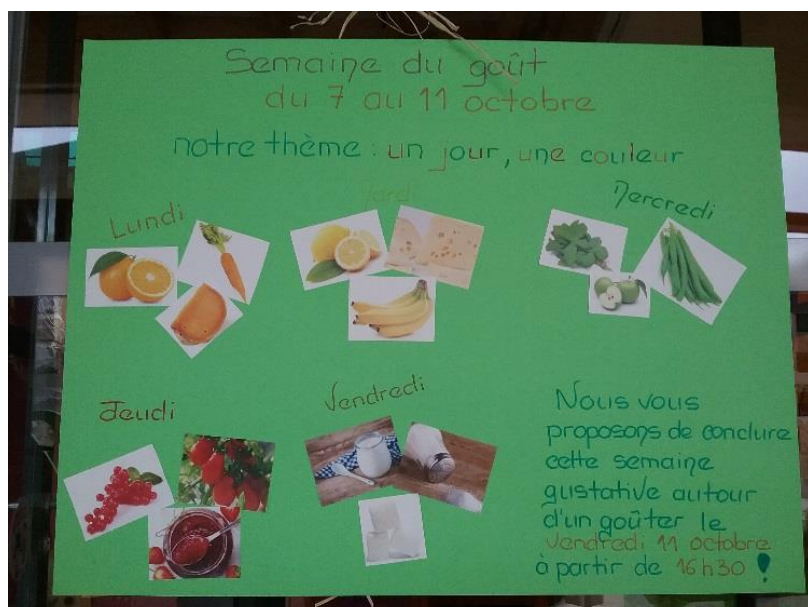 Semaine du goût
du 7 au 11 octobre
notre thème : un jour, une couleur
Lundi
Mardi
Mercredi
Jeudi
Vendredi
Nous vous
proposons de conclure
cette semaine
gustative autour
d'un goûter le
vendredi 11 octobre
à partir de 16h30 !